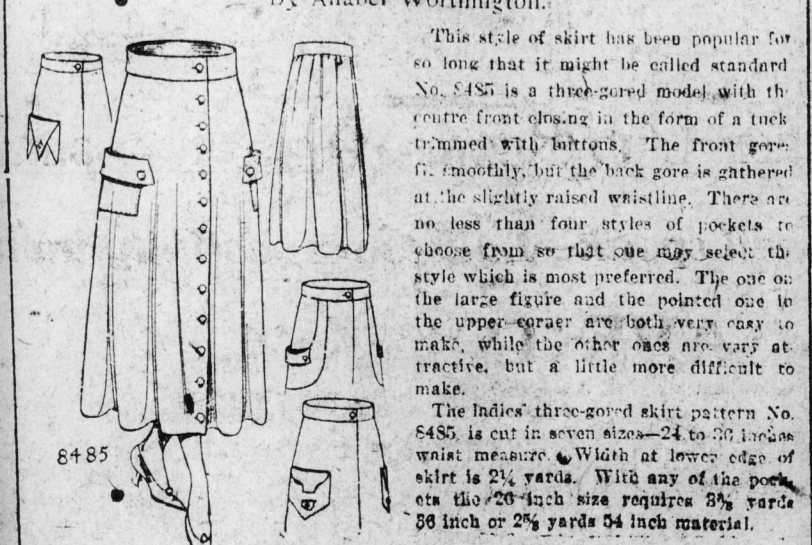 By Anabel Worthington.
This style of skirt has been popular for
so long that it might be called standard
No. 8485 is a three-gored model with th
centre front closing in the form of a tuck
trimmed with buttons. The front gores
fit smoothly, but the back gore is gathered
at the slightly raised waistline. There are
no less than four styles of pockets to
choose from so that one may select th
style which is most preferred. The one on
the large figure and the pointed one in
the upper corner are both very easy to
make, while the other ones are vary at-
tractive, but a little more difficult to
make.
The ladies' three-gored skirt pattern No.
8485 is cut in seven sizes—24 to 36 inches
waist measure. Width at lower edge of
skirt is 2¼ yards. With any of the pock-
ets the 26 inch size requires 3⅜ yards
36 inch or 2⅝ yards 54 inch material.
8485